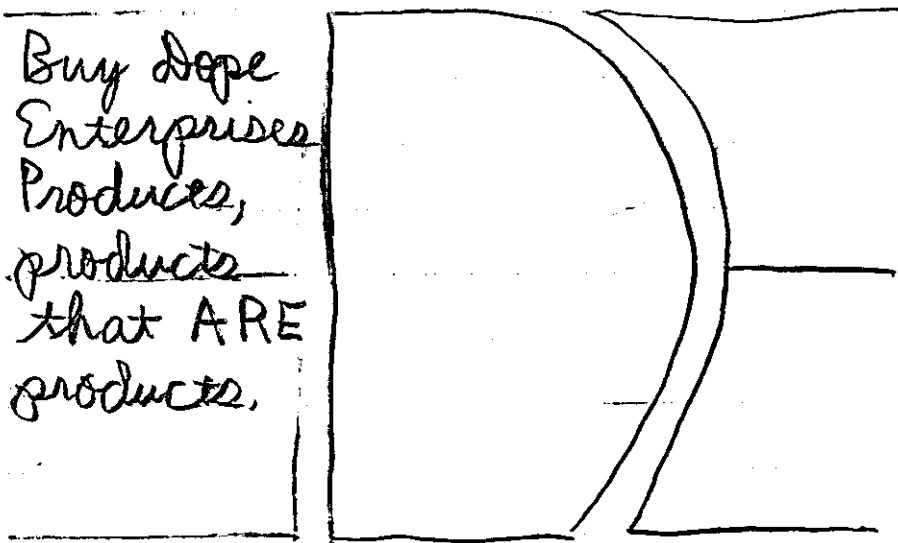 Buy Dope
Enterprises
Products,
products
that ARE
products.